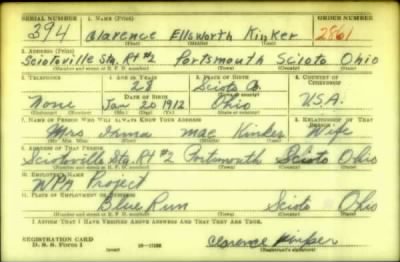 SERIAL NUMBER 1. NAME (Print) ORDER NUMBER
394 Clarence Ellsworth Kinker 2861
(First) (Middle) (Last)
2. ADDRESS (Print)
Sciotoville Sta. Rt #2 Portsmouth Scioto Ohio
(Number and street or R. F. D. number) (Town) (County) (State)
3. TELEPHONE 4. AGE IN YEARS 5. PLACE OF BIRTH 6. COUNTRY OF CITIZENSHIP
28 Scioto Co.
DATE OF BIRTH (Town or county)
None Jan 20 1912 Ohio U.S.A.
(Exchange) (Number) (Mo.) (Day) (Yr.) (State or country)
7. NAME OF PERSON WHO WILL ALWAYS KNOW YOUR ADDRESS 8. RELATIONSHIP OF THAT PERSON
Mrs Irma mae Kinker Wife
(Mr., Mrs., Miss) (First) (Middle) (Last)
9. ADDRESS OF THAT PERSON
Sciotoville Sta. Rt #2 Portsmouth Scioto Ohio
(Number and street or R. F. D. number) (Town) (County) (State)
10. EMPLOYER'S NAME
WPA Project
11. PLACE OF EMPLOYMENT OR BUSINESS
Blue Run Scioto Ohio
(Number and street or R. F. D. number) (Town) (County) (State)
I AFFIRM THAT I HAVE VERIFIED ABOVE ANSWERS AND THAT THEY ARE TRUE.
REGISTRATION CARD
D. S. S. Form 1
Clarence Kinker
(Registrant's signature)